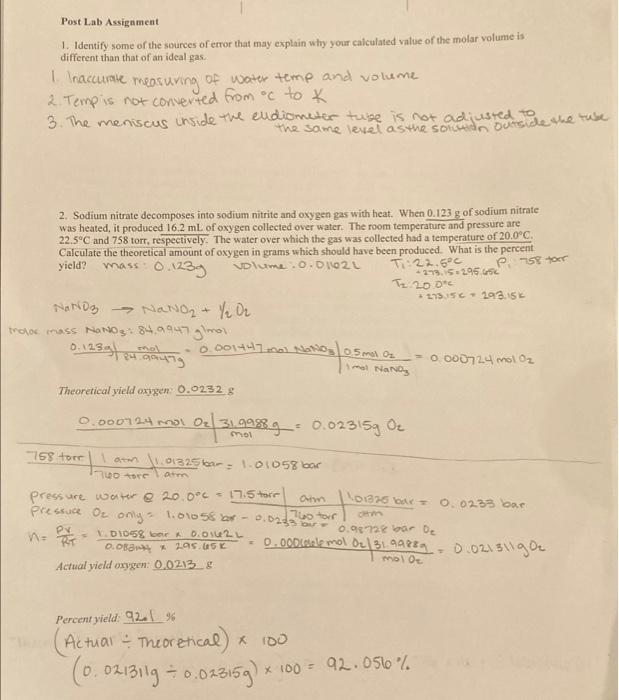 Post Lab Assignment
1. Identify some of the sources of error that may explain why your calculated value of the molar volume is
different than that of an ideal gas.
1. Inaccurate measuring of water temp and volume
2. Temp is not converted from °C to K
3. The meniscus inside the eudiometer tube is not adjusted to
the same level as the solution outside the tube
2. Sodium nitrate decomposes into sodium nitrite and oxygen gas with heat. When 0.123 g of sodium nitrate
was heated, it produced 16.2 mL of oxygen collected over water. The room temperature and pressure are
22.5°C and 758 torr, respectively. The water over which the gas was collected had a temperature of 20.0°C.
Calculate the theoretical amount of oxygen in grams which should have been produced. What is the percent
yield? mass: 0.123g volume: 0.0162L T₁: 22.5°C P₁: 758 torr
+273.15=295.65K
T₂: 20.0°C
+273.15K = 293.15K
NaNO₃ → NaNO₂ + ½O₂
molar mass NaNO₃: 84.9947 g/mol
0.123g | mol = 0.001447 mol NaNO₃ | 0.5 mol O₂ = 0.000724 mol O₂
84.9947g 1 mol NaNO₃
Theoretical yield oxygen: 0.0232 g
0.000724 mol O₂ | 31.9988g = 0.02315g O₂
mol
758 torr | 1 atm | 1.01325 bar = 1.01058 bar
760 torr | atm
Pressure water @ 20.0°C = 17.5 torr | atm | 1.01325 bar = 0.0233 bar
760 torr atm
Pressure O₂ only = 1.01058 bar - 0.0233 bar = 0.98728 bar O₂
n = PV/RT = 1.01058 bar x 0.0162L = mol O₂ | 31.9988g = 0.021311g O₂
x 295.65K 1 mol O₂
Actual yield oxygen: 0.0213 g
Percent yield: 92.1 %
(Actual ÷ Theoretical) x 100
(0.021311g ÷ 0.02315g) x 100 = 92.056%